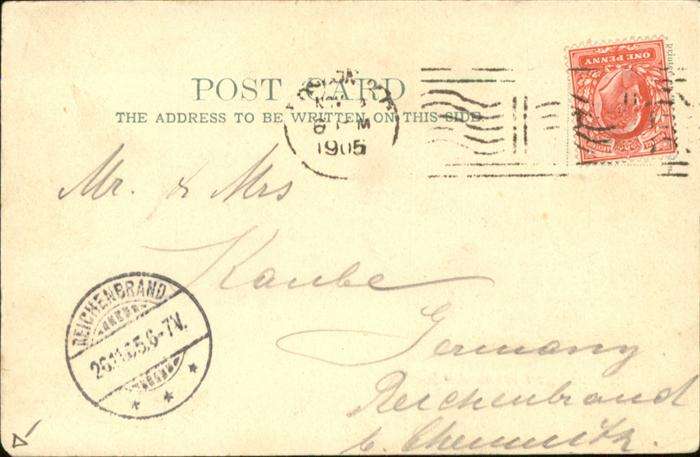 POST CARD
THE ADDRESS TO BE WRITTEN ON THIS SIDE
1905
ONE PENNY
Mr. & Mrs
Kaube
Germany
Reichenbrand
b. Chemnitz.
REICHENBRAND
26.11.05.6-7V.